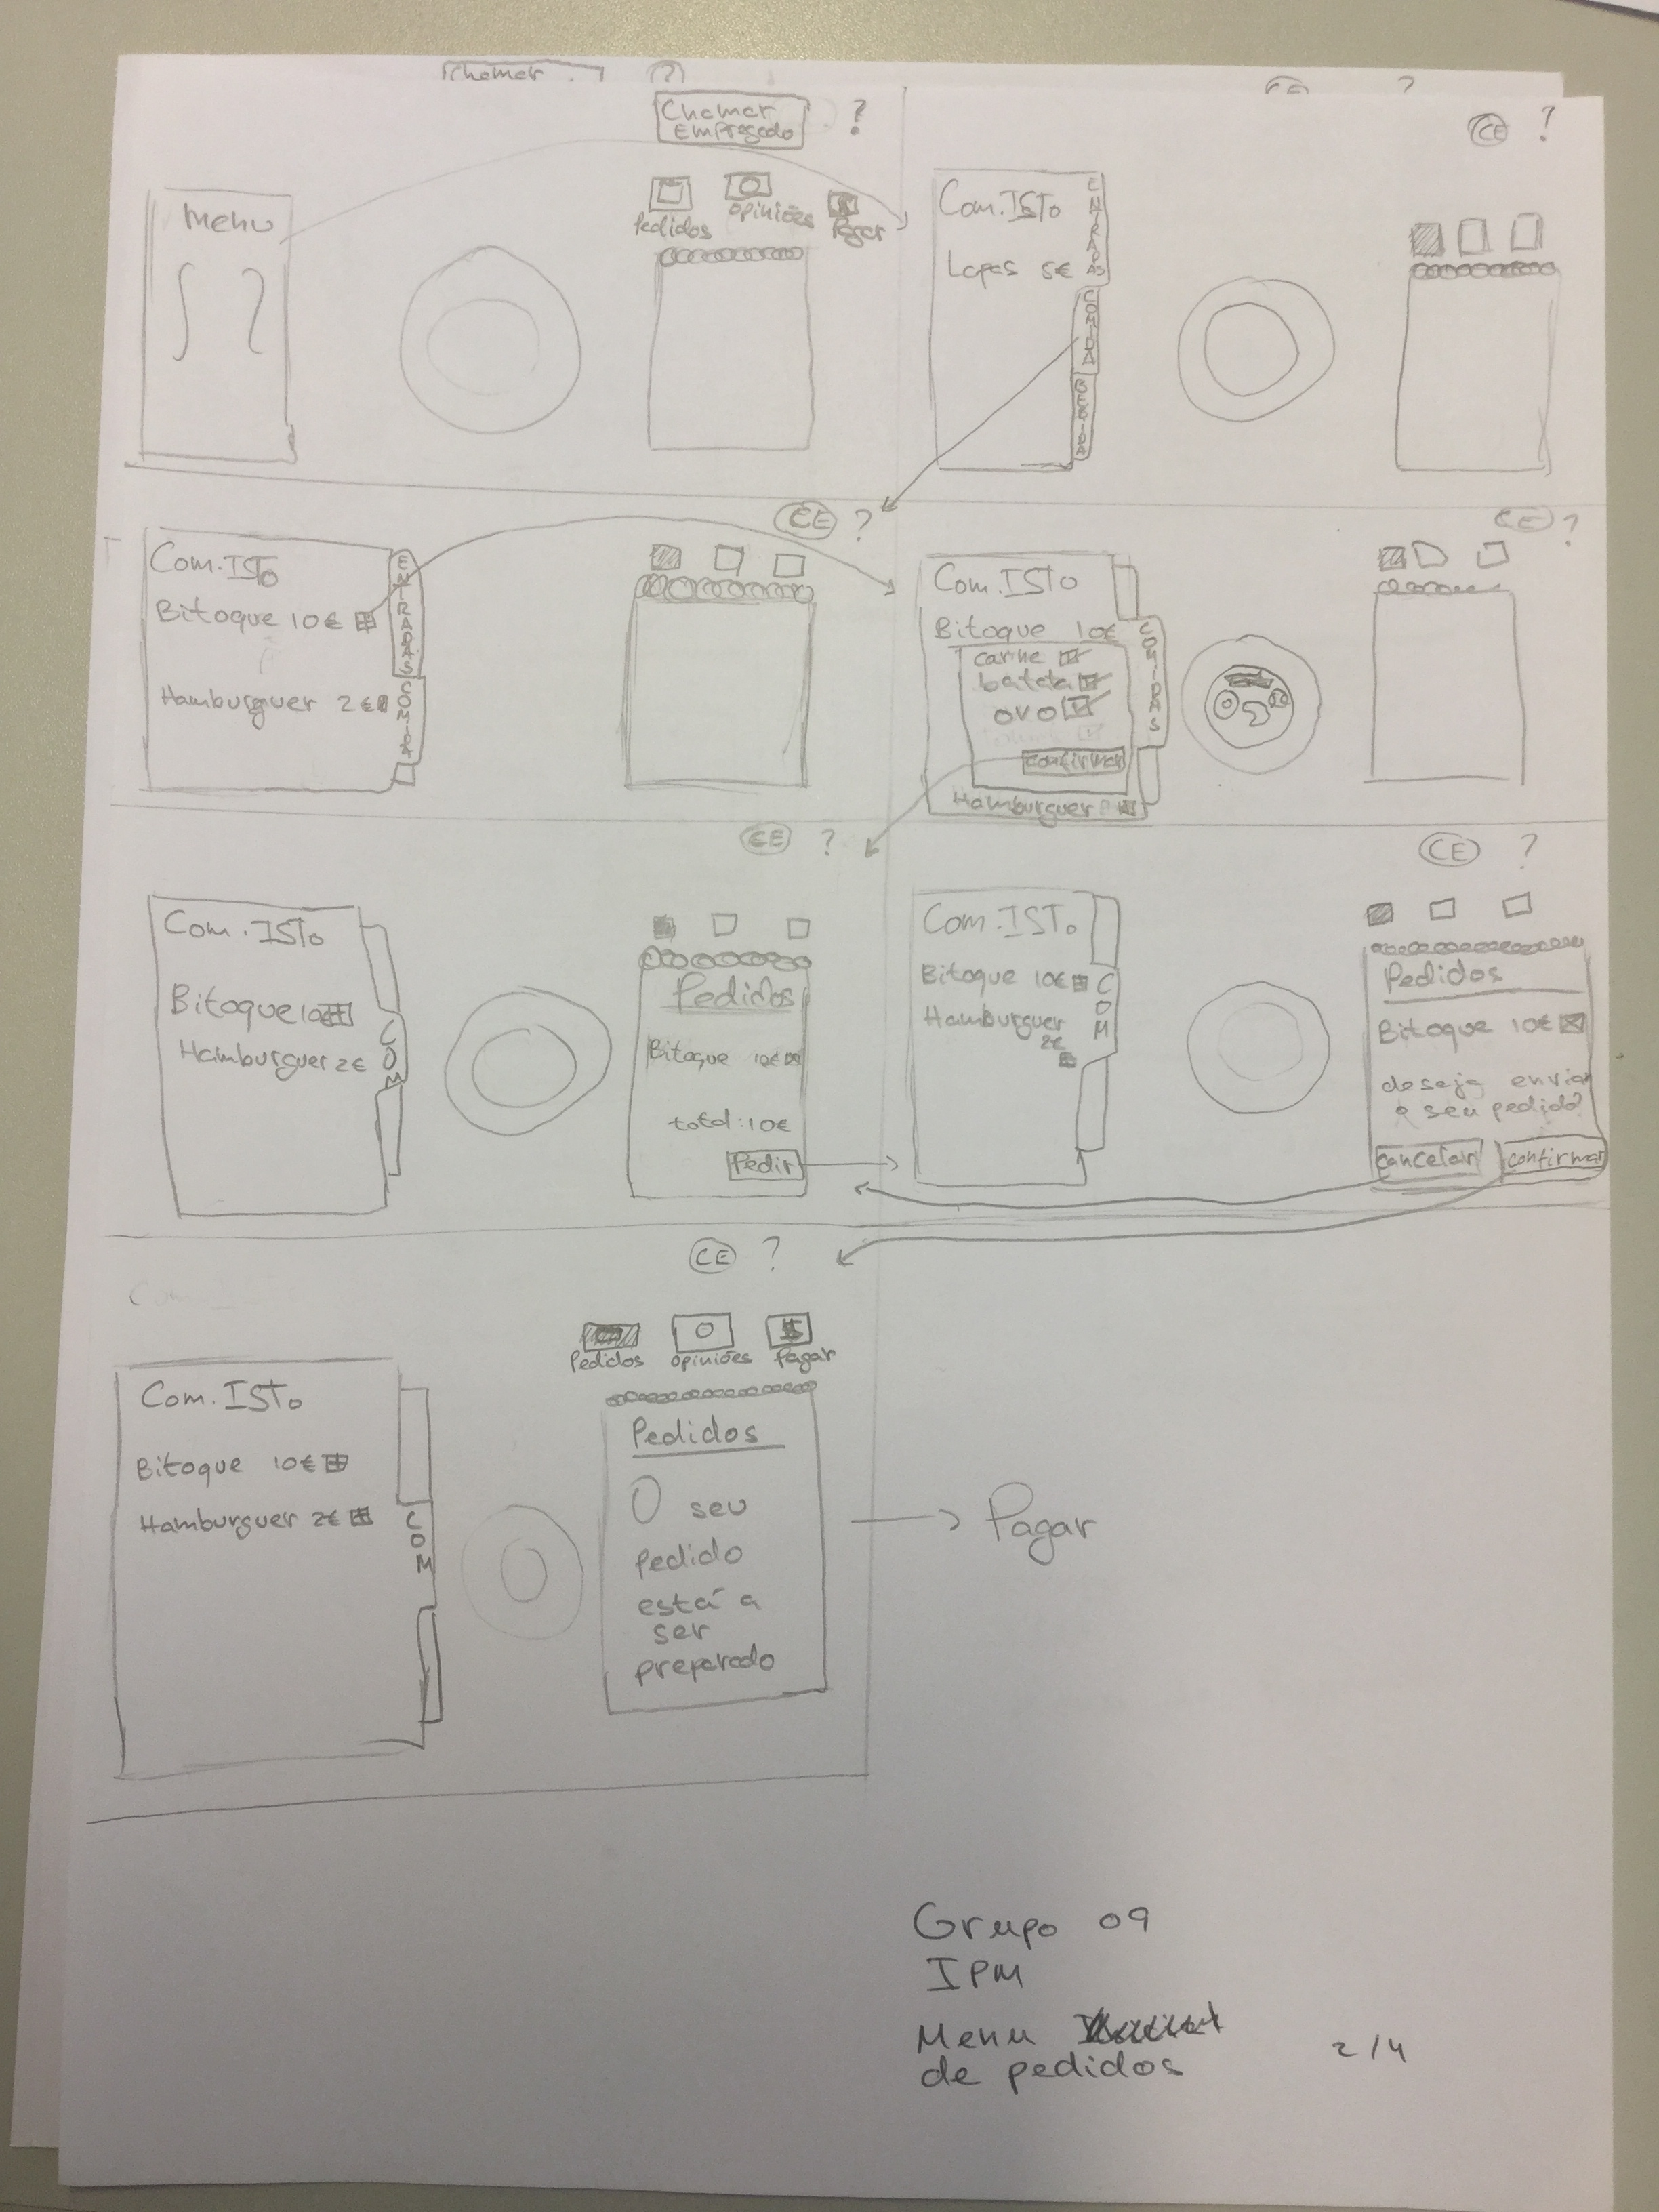 Chamar
?
Chamar
Empregado
?
CE ?
Menu
Pedidos
opiniões
Pagar
Com.ISTo
Lapas 5€
ENTRADAS
COMIDA
BEBIDA
CE ?
Com.ISTo
Bitoque 10€
Hamburguer 2€
ENTRADAS
COMIDA
CE ?
Com.ISTo
Bitoque 10€
carne
batata
ovo
confirmar
Hamburguer
COMIDAS
CE ?
Com.ISTo
Bitoque 10€
Hamburguer 2€
COM
Pedidos
Bitoque 10€
total: 10€
Pedir
CE ?
Com.ISTo
Bitoque 10€
Hamburguer
2€
COM
Pedidos
Bitoque 10€
deseja enviar
o seu pedido?
cancelar
confirmar
CE ?
Com.ISTo
Bitoque 10€
Hamburguer 2€
COM
Pedidos
opiniões
Pagar
Pedidos
O seu
pedido
está a
ser
preparado
Pagar
Grupo 09
IPM
Menu
de pedidos
2/4